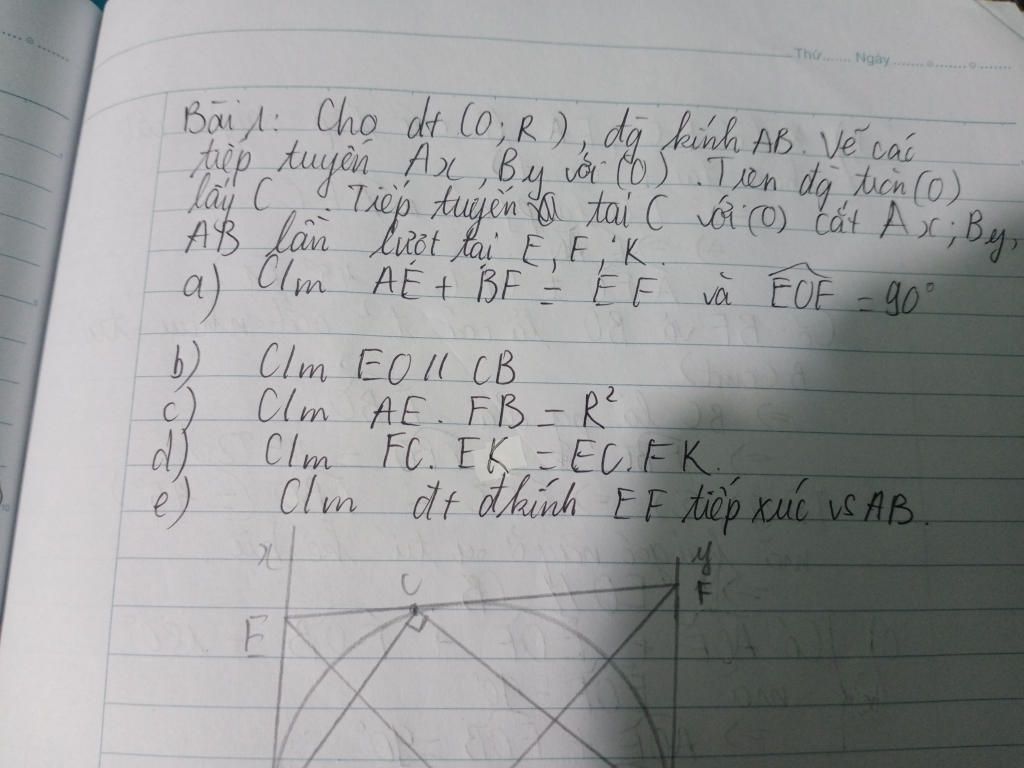 Thứ....... Ngày.......
Bài 1: Cho đt (O; R), đg kính AB. Vẽ các
tiếp tuyến Ax, By với (O). Trên đg tròn (O)
lấy C. Tiếp tuyến tại C với (O) cắt Ax; By,
AB lần lượt tại E, F, K.
a) C/m AE + BF = EF và EOF = 90°
b) C/m EO // CB
c) C/m AE. FB = R²
d) C/m FC. EK = EC. FK.
e) C/m đt đkính EF tiếp xúc vs AB.
x
y
C
F
E